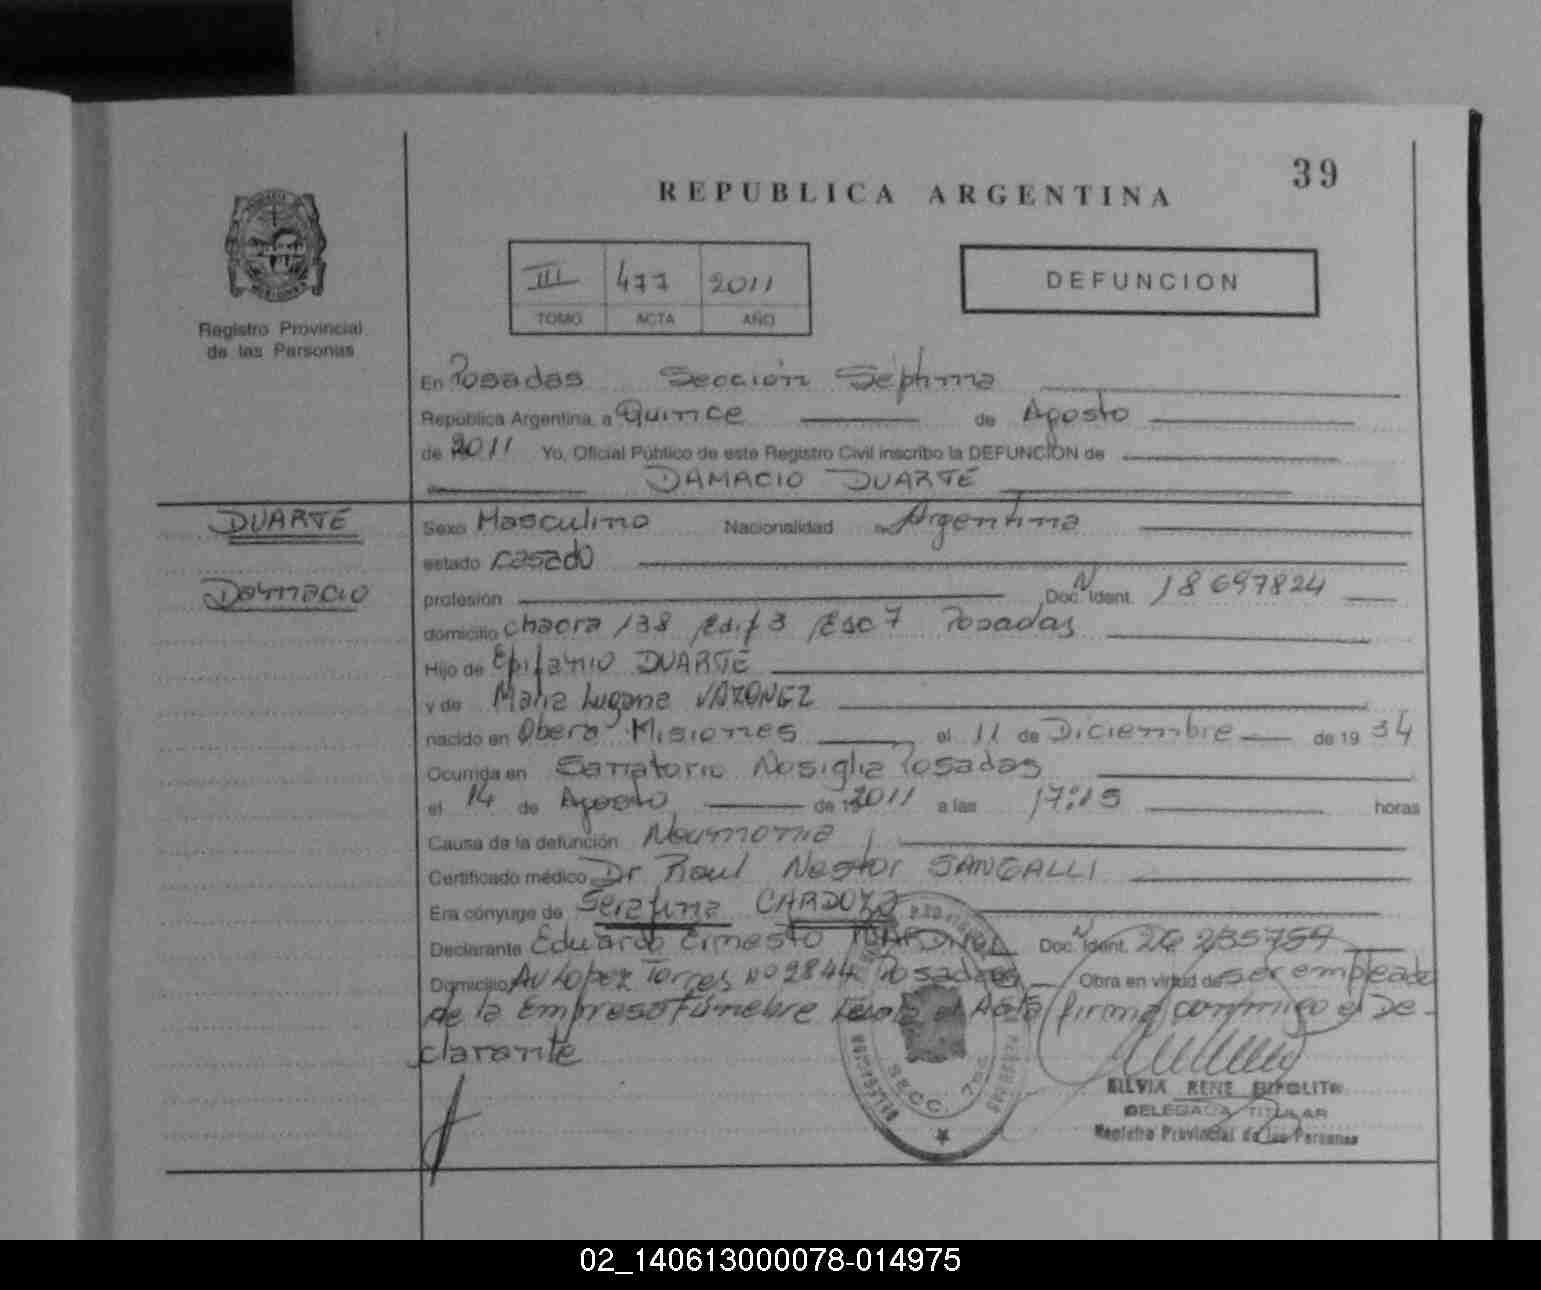 39
REPUBLICA ARGENTINA
III 477 2011
TOMO ACTA AÑO
DEFUNCION
Registro Provincial
de las Personas
En Posadas Sección Séptima
República Argentina, a Quince de Agosto
de 2011 Yo, Oficial Público de este Registro Civil inscribo la DEFUNCIÓN de
DAMACIO DUARTE
DUARTE
Damacio
Sexo Masculino Nacionalidad Argentina
estado casado
profesión Doc. N Ident. 18697824
domicilio chacra 138 Edif 3 Esc 7 Posadas
Hijo de Epifanio DUARTE
y de Maria Lugana
nacido en Obera Misiones el 11 de Diciembre de 19 34
Ocurrida en Sanatorio Nosiglia Posadas
el 14 de Agosto de 2011 a las 17:15 horas
Causa de la defunción Neumonia
Certificado médico Dr Raul Nestor SANGALLI
Era cónyuge de Serafina CARDOZO
Declarante Eduardo Ernesto Doc. N Ident.
Domicilio Av Lopez Torres Nº 2844 Posadas Obra en virtud de ser empleado
de la Empresa Fúnebre el Acta firma conmigo el De-
clarante
SECC. 7ma
SILVIA RENE HIPOLITO
DELEGADA TITULAR
Registro Provincial de las Personas
02_140613000078-014975